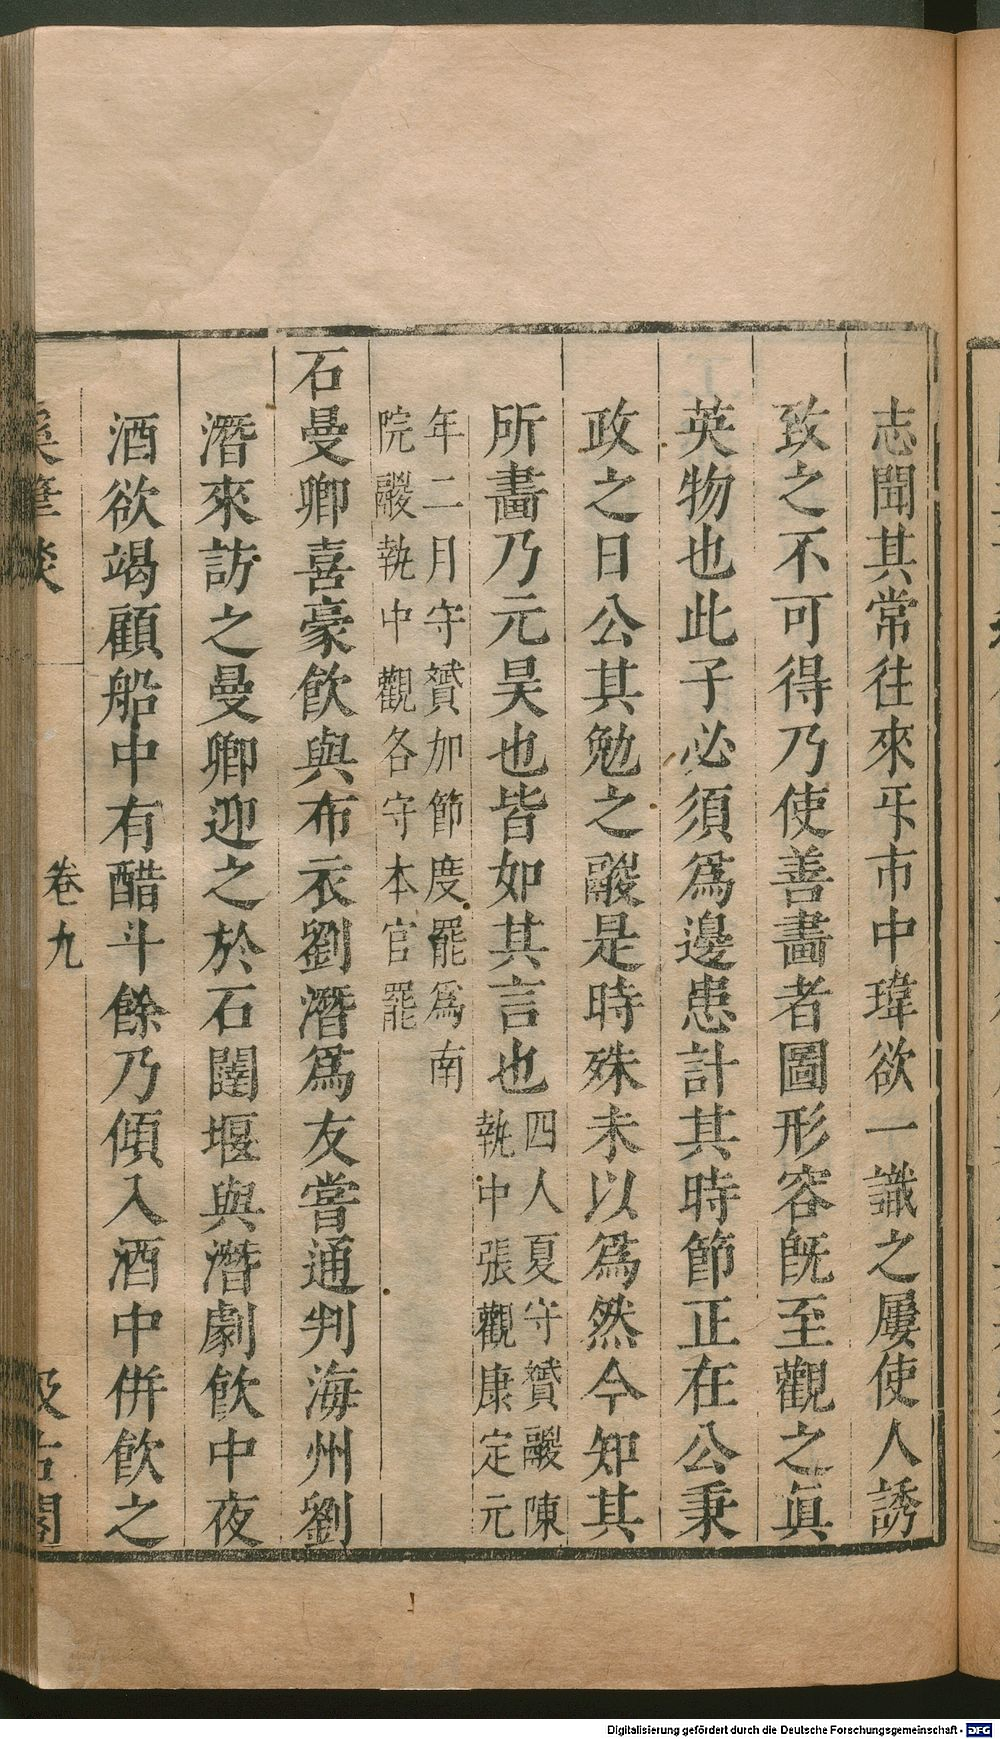 志聞其常往來牙市中瑋欲一識之屢使人誘
致之不可得乃使善畵者圖形容旣至觀之眞
英物也此子必須爲邊患計其時節正在公秉
政之日公其勉之鬷是時殊未以爲然今知其
所畵乃元昊也皆如其言也四人夏守贇鬷陳
執中張觀康定元
年二月守贇加節度罷爲南
院鬷執中觀各守本官罷
石曼卿喜豪飲與布衣劉潛爲友嘗通判海州劉
潛來訪之曼卿迎之於石闥堰與潛劇飲中夜
酒欲竭顧船中有醋斗餘乃傾入酒中併飲之
溪筆談
卷九
汲古閣
Digitalisierung gefördert durch die Deutsche Forschungsgemeinschaft - DFG